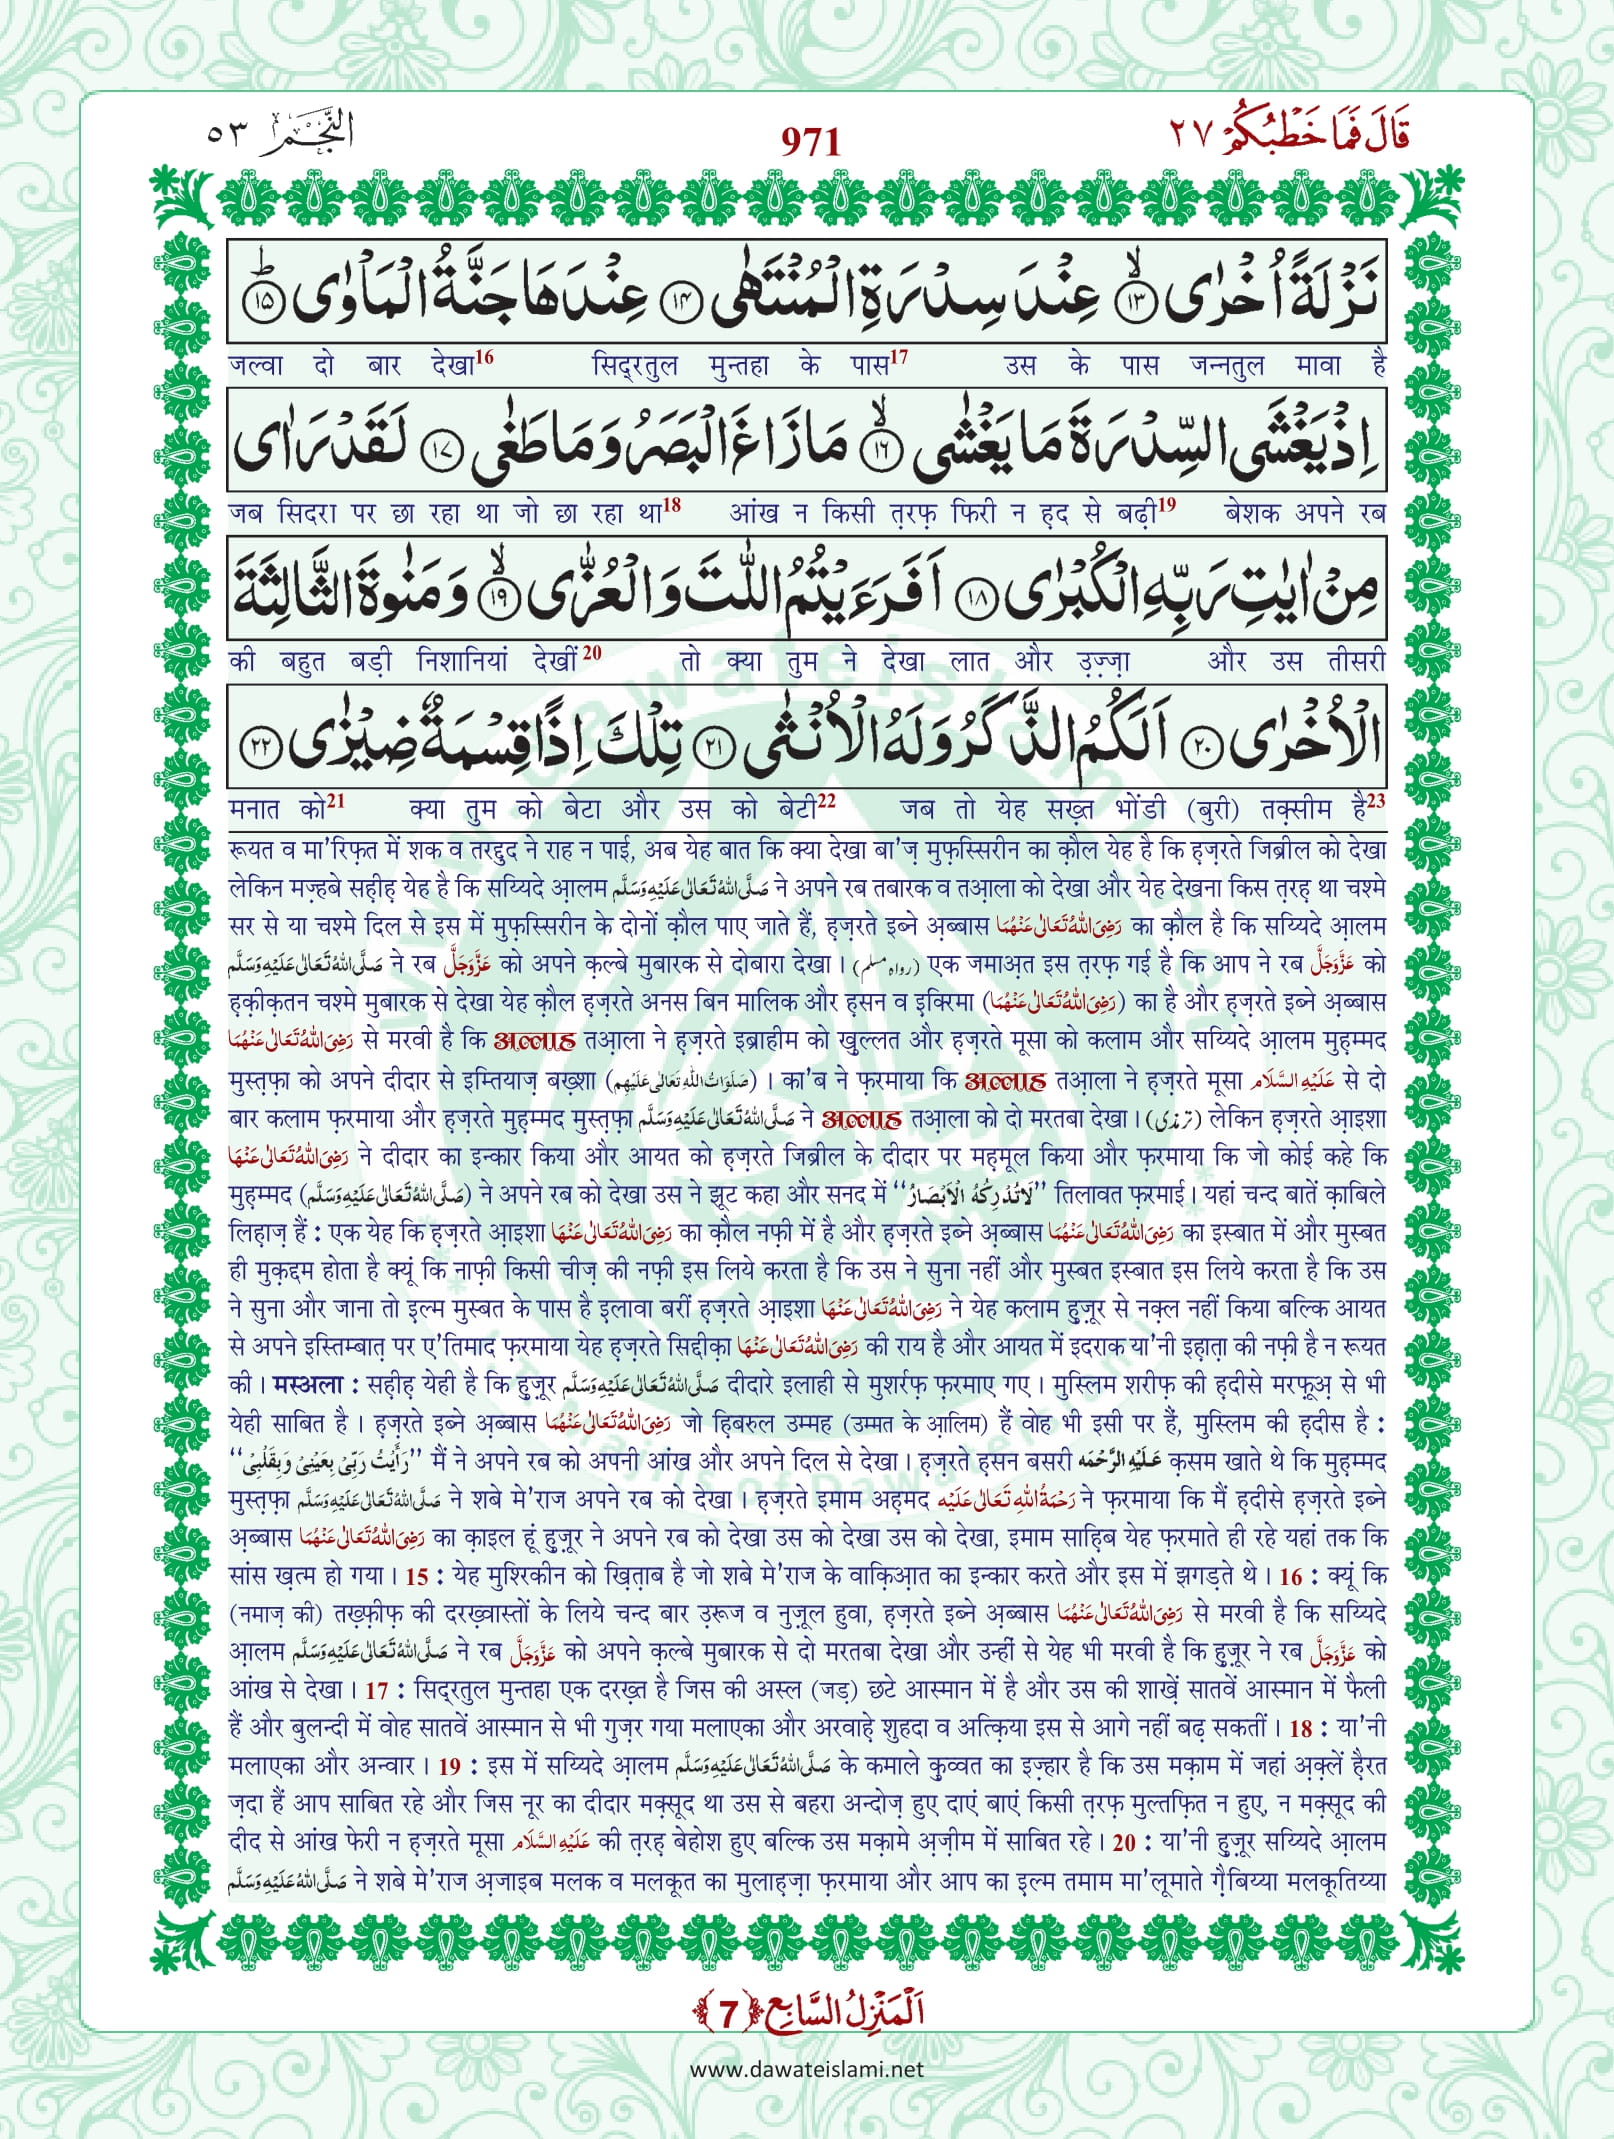 النَّجْم ٥٣ 971 قَالَ فَمَا خَطْبُكُمْ ٢٧
نَزْلَةً اُخْرٰى ۙ﴿۱۳﴾ عِنْدَ سِدْرَةِ الْمُنْتَهٰى ﴿۱۴﴾ عِنْدَهَا جَنَّةُ الْمَاْوٰى ؕ﴿۱۵﴾
जल्वा दो बार देखा16 सिद्रतुल मुन्तहा के पास17 उस के पास जन्नतुल मावा है
اِذْ یَغْشَى السِّدْرَةَ مَا یَغْشٰى ۙ﴿۱۶﴾ مَا زَاغَ الْبَصَرُ وَ مَا طَغٰى ﴿۱۷﴾ لَقَدْ رَاٰى
जब सिदरा पर छा रहा था जो छा रहा था18 आंख न किसी त़रफ़ फिरी न ह़द से बढ़ी19 बेशक अपने रब
مِنْ اٰیٰتِ رَبِّهِ الْكُبْرٰى ﴿۱۸﴾ اَفَرَءَیْتُمُ اللّٰتَ وَ الْعُزّٰى ۙ﴿۱۹﴾ وَ مَنٰوةَ الثَّالِثَةَ
की बहुत बड़ी निशानियां देखीं20 तो क्या तुम ने देखा लात और उ़ज़्ज़ा और उस तीसरी
الْاُخْرٰى ﴿۲۰﴾ اَلَكُمُ الذَّكَرُ وَ لَهُ الْاُنْثٰى ﴿۲۱﴾ تِلْكَ اِذًا قِسْمَةٌ ضِیْزٰى ﴿۲۲﴾
मनात को21 क्या तुम को बेटा और उस को बेटी22 जब तो येह सख़्त भोंडी (बुरी) तक़्सीम है23
रूयत व मा'रिफ़त में शक व तरद्दुद ने राह न पाई, अब येह बात कि क्या देखा बा'ज़ मुफ़स्सिरीन का क़ौल येह है कि ह़ज़रते जिब्रील को देखा
लेकिन मज़्हबे सह़ीह़ येह है कि सय्यिदे आ़लम صَلَّى اللهُ تَعَالٰى عَلَيْهِ وَسَلَّم ने अपने रब तबारक व तआ़ला को देखा और येह देखना किस त़रह़ था चश्मे
सर से या चश्मे दिल से इस में मुफ़स्सिरीन के दोनों क़ौल पाए जाते हैं, ह़ज़रते इब्ने अ़ब्बास رَضِىَ اللهُ تَعَالٰى عَنْهُمَا का क़ौल है कि सय्यिदे आ़लम
صَلَّى اللهُ تَعَالٰى عَلَيْهِ وَسَلَّم ने रब عَزَّوَجَلَّ को अपने क़ल्बे मुबारक से दोबारा देखा। (رواه مسلم) एक जमाअ़त इस त़रफ़ गई है कि आप ने रब عَزَّوَجَلَّ को
ह़क़ीक़तन चश्मे मुबारक से देखा येह क़ौल ह़ज़रते अनस बिन मालिक और ह़सन व इक्रिमा (رَضِىَ اللهُ تَعَالٰى عَنْهُمَا) का है और ह़ज़रते इब्ने अ़ब्बास
رَضِىَ اللهُ تَعَالٰى عَنْهُمَا से मरवी है कि अल्लाह तआ़ला ने ह़ज़रते इब्राहीम को खुल्लत और ह़ज़रते मूसा को कलाम और सय्यिदे आ़लम मुह़म्मद
मुस्त़फ़ा को अपने दीदार से इम्तियाज़ बख़्शा (صَلَوَاتُ اللهِ تَعَالٰى عَلَيْهِم)। का'ब ने फ़रमाया कि अल्लाह तआ़ला ने ह़ज़रते मूसा عَلَيْهِ السَّلَام से दो
बार कलाम फ़रमाया और ह़ज़रते मुह़म्मद मुस्त़फ़ा صَلَّى اللهُ تَعَالٰى عَلَيْهِ وَسَلَّم ने अल्लाह तआ़ला को दो मरतबा देखा। (ترمذى) लेकिन ह़ज़रते आ़इशा
رَضِىَ اللهُ تَعَالٰى عَنْهَا ने दीदार का इन्कार किया और आयत को ह़ज़रते जिब्रील के दीदार पर मह़मूल किया और फ़रमाया कि जो कोई कहे कि
मुह़म्मद (صَلَّى اللهُ تَعَالٰى عَلَيْهِ وَسَلَّم) ने अपने रब को देखा उस ने झूट कहा और सनद में ‘‘لَا تُدْرِكُهُ الْاَبْصَارُ’’ तिलावत फ़रमाई। यहां चन्द बातें क़ाबिले
लिह़ाज़ हैं : एक येह कि ह़ज़रते आ़इशा رَضِىَ اللهُ تَعَالٰى عَنْهَا का क़ौल नफ़ी में है और ह़ज़रते इब्ने अ़ब्बास رَضِىَ اللهُ تَعَالٰى عَنْهُمَا का इस्बात में और मुस्बत
ही मुक़द्दम होता है क्यूं कि नाफ़ी किसी चीज़ की नफ़ी इस लिये करता है कि उस ने सुना नहीं और मुस्बत इस्बात इस लिये करता है कि उस
ने सुना और जाना तो इल्म मुस्बत के पास है इलावा बरीं ह़ज़रते आ़इशा رَضِىَ اللهُ تَعَالٰى عَنْهَا ने येह कलाम हुज़ूर से नक़्ल नहीं किया बल्कि आयत
से अपने इस्तिम्बात़ पर ए'तिमाद फ़रमाया येह ह़ज़रते सिद्दीक़ा رَضِىَ اللهُ تَعَالٰى عَنْهَا की राय है और आयत में इदराक या'नी इह़ात़ा की नफ़ी है न रूयत
की। मस्अला : सह़ीह़ येही है कि हुज़ूर صَلَّى اللهُ تَعَالٰى عَلَيْهِ وَسَلَّم दीदारे इलाही से मुशर्रफ़ फ़रमाए गए। मुस्लिम शरीफ़ की ह़दीसे मरफ़ूअ़ से भी
येही साबित है। ह़ज़रते इब्ने अ़ब्बास رَضِىَ اللهُ تَعَالٰى عَنْهُمَا जो ह़िबरुल उम्मह (उम्मत के आ़लिम) हैं वोह भी इसी पर हैं, मुस्लिम की ह़दीस है :
‘‘رَأَيْتُ رَبِّىْ بِعَيْنِىْ وَبِقَلْبِىْ’’ मैं ने अपने रब को अपनी आंख और अपने दिल से देखा। ह़ज़रते ह़सन बसरी عَلَيْهِ الرَّحْمَه क़सम खाते थे कि मुह़म्मद
मुस्त़फ़ा صَلَّى اللهُ تَعَالٰى عَلَيْهِ وَسَلَّم ने शबे मे'राज अपने रब को देखा। ह़ज़रते इमाम अह़मद رَحْمَةُ اللهِ تَعَالٰى عَلَيْه ने फ़रमाया कि मैं ह़दीसे ह़ज़रते इब्ने
अ़ब्बास رَضِىَ اللهُ تَعَالٰى عَنْهُمَا का क़ाइल हूं हुज़ूर ने अपने रब को देखा उस को देखा उस को देखा, इमाम साहिब येह फ़रमाते ही रहे यहां तक कि
सांस ख़त्म हो गया। 15 : येह मुश्रिकीन को ख़ित़ाब है जो शबे मे'राज के वाक़िआ़त का इन्कार करते और इस में झगड़ते थे। 16 : क्यूं कि
(नमाज़ की) तख़्फ़ीफ़ की दरख़्वास्तों के लिये चन्द बार उ़रूज व नुज़ूल हुवा, ह़ज़रते इब्ने अ़ब्बास رَضِىَ اللهُ تَعَالٰى عَنْهُمَا से मरवी है कि सय्यिदे
आ़लम صَلَّى اللهُ تَعَالٰى عَلَيْهِ وَسَلَّم ने रब عَزَّوَجَلَّ को अपने क़ल्बे मुबारक से दो मरतबा देखा और उन्हीं से येह भी मरवी है कि हुज़ूर ने रब عَزَّوَجَلَّ को
आंख से देखा। 17 : सिद्रतुल मुन्तहा एक दरख़्त है जिस की अस्ल (जड़) छटे आस्मान में है और उस की शाख़ें सातवें आस्मान में फैली
हैं और बुलन्दी में वोह सातवें आस्मान से भी गुज़र गया मलाएका और अरवाह़े शुहदा व अत्क़िया इस से आगे नहीं बढ़ सकतीं। 18 : या'नी
मलाएका और अन्वार। 19 : इस में सय्यिदे आ़लम صَلَّى اللهُ تَعَالٰى عَلَيْهِ وَسَلَّم के कमाले कुव्वत का इज़्हार है कि उस मक़ाम में जहां अ़क़्लें ह़ैरत
ज़दा हैं आप साबित रहे और जिस नूर का दीदार मक़्सूद था उस से बहरा अन्दोज़ हुए दाएं बाएं किसी त़रफ़ मुल्तफ़ित न हुए, न मक़्सूद की
दीद से आंख फेरी न ह़ज़रते मूसा عَلَيْهِ السَّلَام की त़रह़ बेहोश हुए बल्कि उस मक़ामे अ़ज़ीम में साबित रहे। 20 : या'नी हुज़ूर सय्यिदे आ़लम
صَلَّى اللهُ عَلَيْهِ وَسَلَّم ने शबे मे'राज अ़जाइब मलक व मलकूत का मुलाह़ज़ा फ़रमाया और आप का इल्म तमाम मा'लूमाते ग़ैबिय्या मलकूतिय्या
اَلْمَنْزِلُ السَّابِع ﴿7﴾
www.dawateislami.net